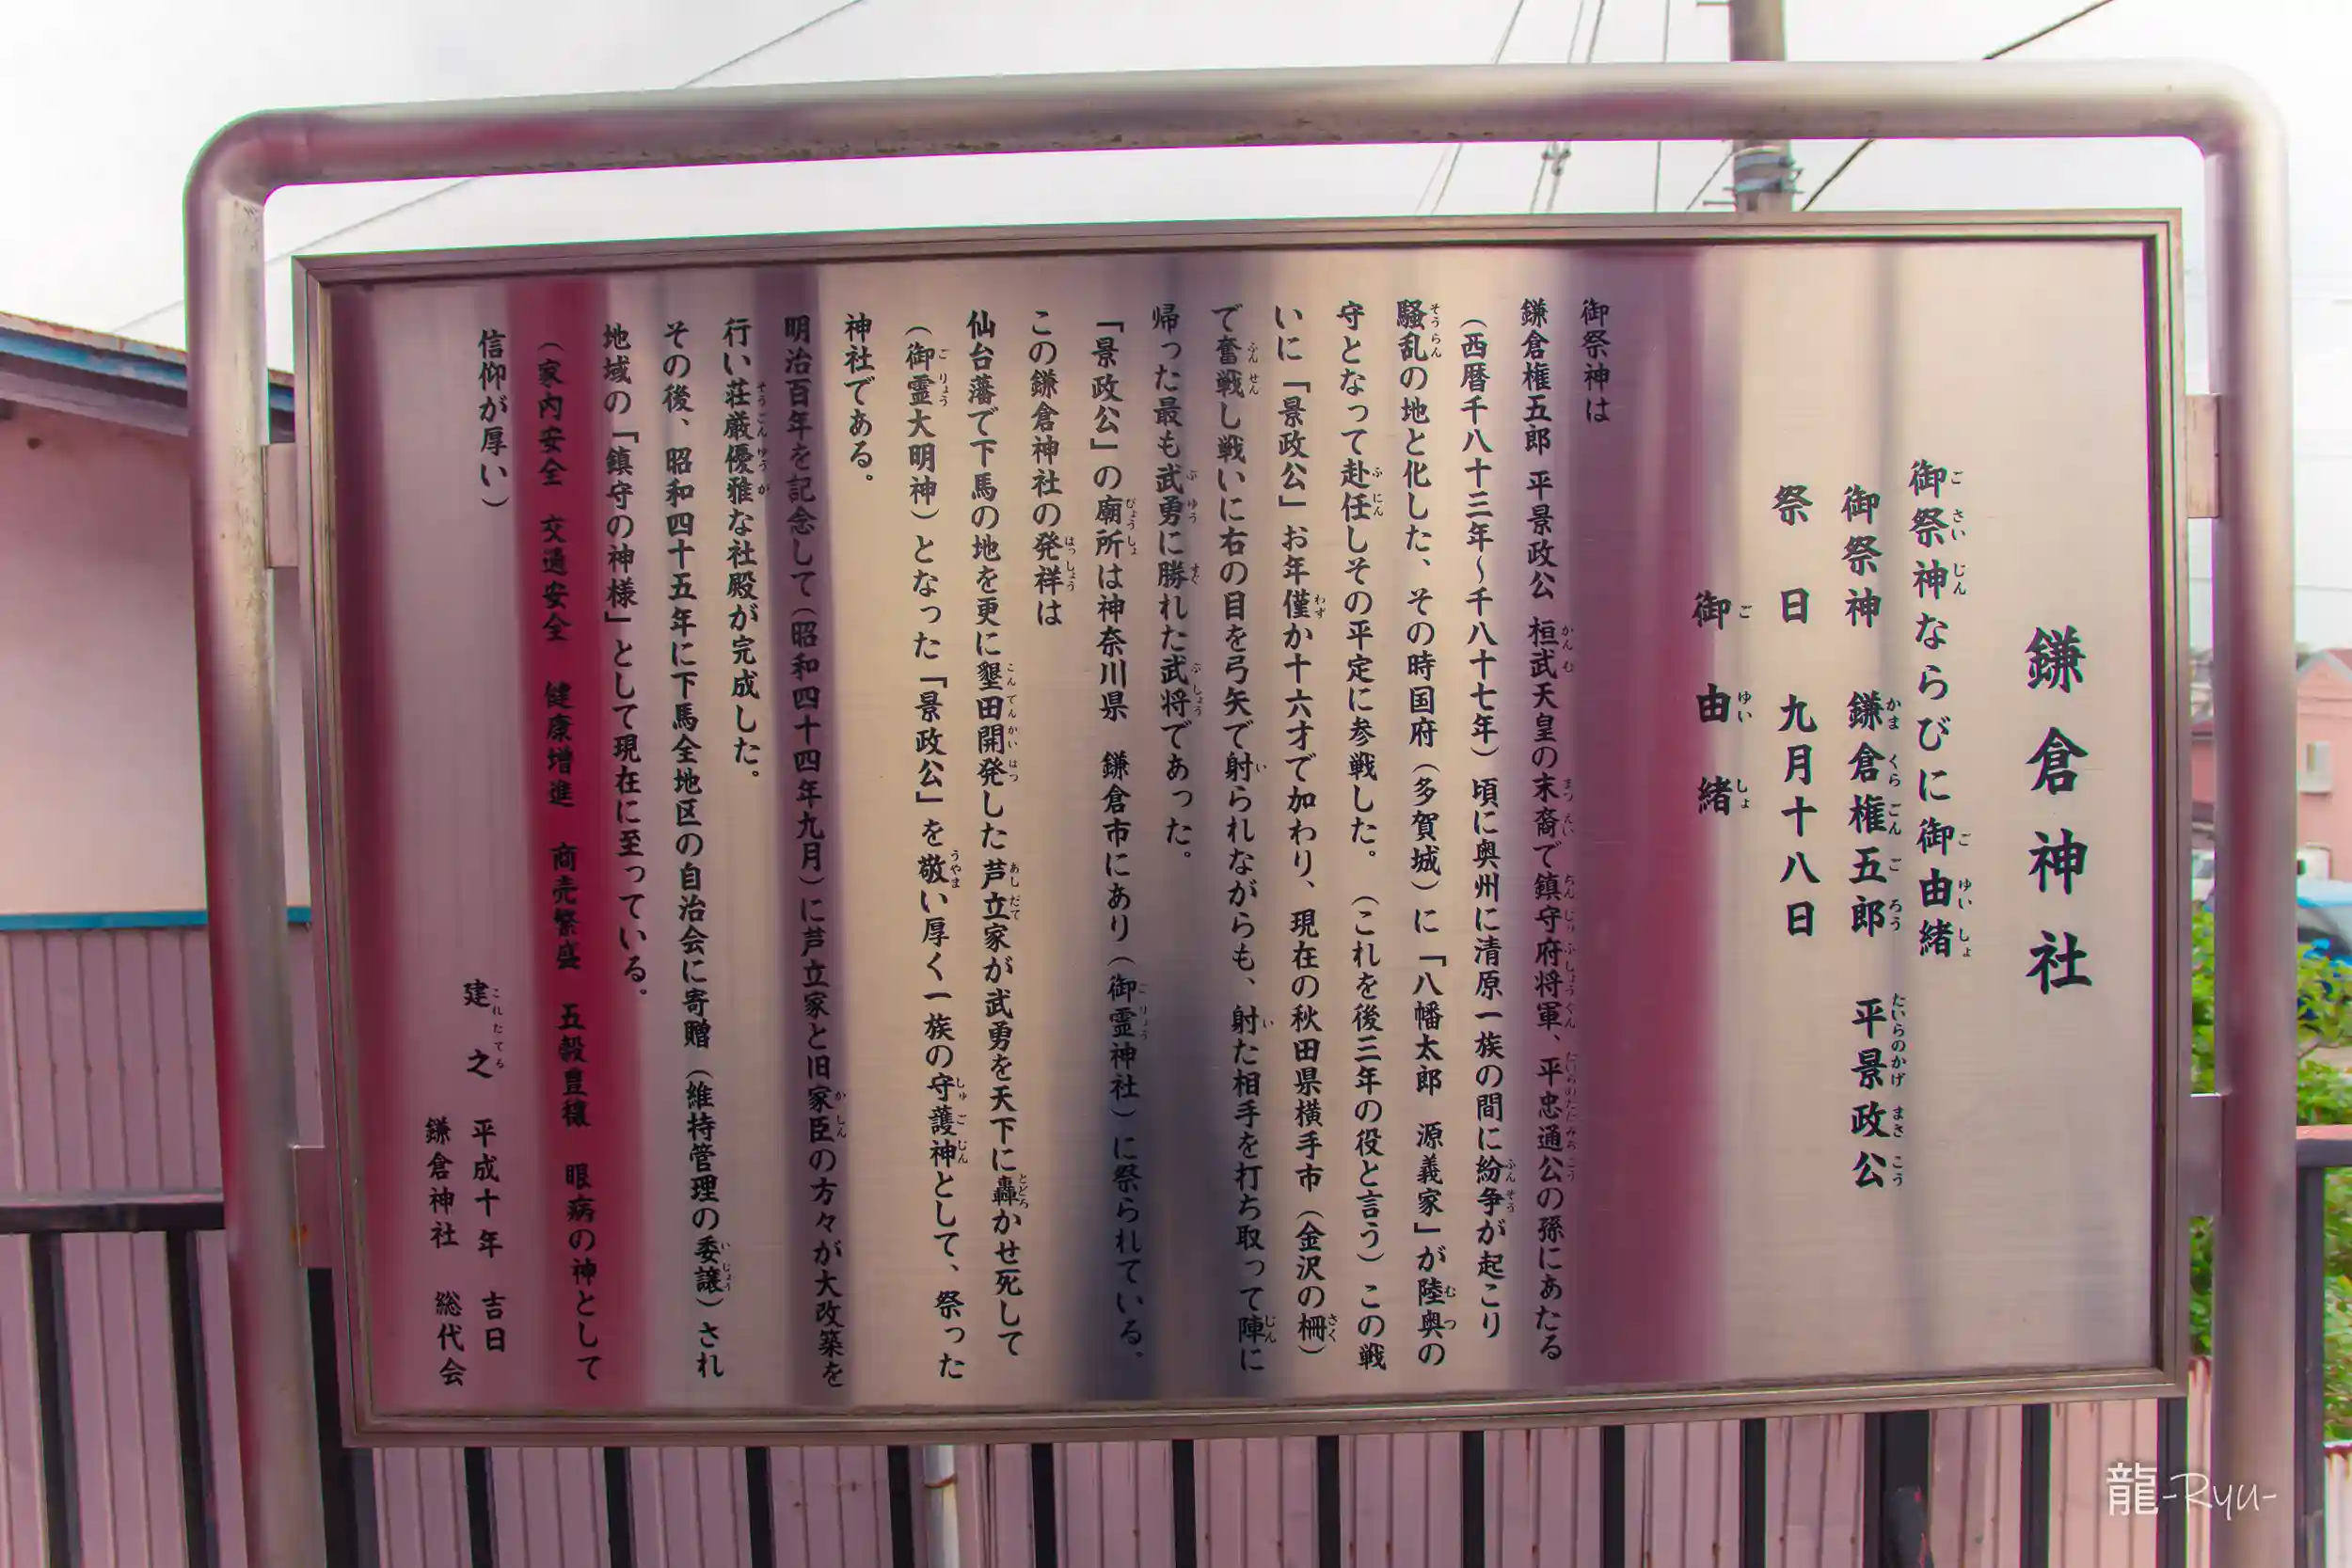 鎌倉神社
御祭神ならびに御由緒
御祭神　鎌倉権五郎　平景政公
祭　日　九月十八日
御　由　緒
御祭神は
鎌倉権五郎 平景政公 桓武天皇の末裔で鎮守府将軍、平忠通公の孫にあたる
（西暦千八十三年～千八十七年）頃に奥州に清原一族の間に紛争が起こり
騒乱の地と化した、その時国府（多賀城）に「八幡太郎　源義家」が陸奥の
守となって赴任しその平定に参戦した。（これを後三年の役と言う）この戦
いに「景政公」お年僅か十六才で加わり、現在の秋田県横手市（金沢の柵）
で奮戦し戦いに右の目を弓矢で射られながらも、射た相手を打ち取って陣に
帰った最も武勇に勝れた武将であった。
「景政公」の廟所は神奈川県　鎌倉市にあり（御霊神社）に祭られている。
この鎌倉神社の発祥は
仙台藩で下馬の地を更に墾田開発した芦立家が武勇を天下に轟かせ死して
（御霊大明神）となった「景政公」を敬い厚く一族の守護神として、祭った
神社である。
明治百年を記念して（昭和四十四年九月）に芦立家と旧家臣の方々が大改築を
行い荘厳優雅な社殿が完成した。
その後、昭和四十五年に下馬全地区の自治会に寄贈（維持管理の委譲）され
地域の「鎮守の神様」として現在に至っている。
（家内安全　交通安全　健康増進　商売繁盛　五穀豊穣　眼病の神として
信仰が厚い）
建　之　平成十年　吉日
鎌倉神社　総代会
龍-Ryu-